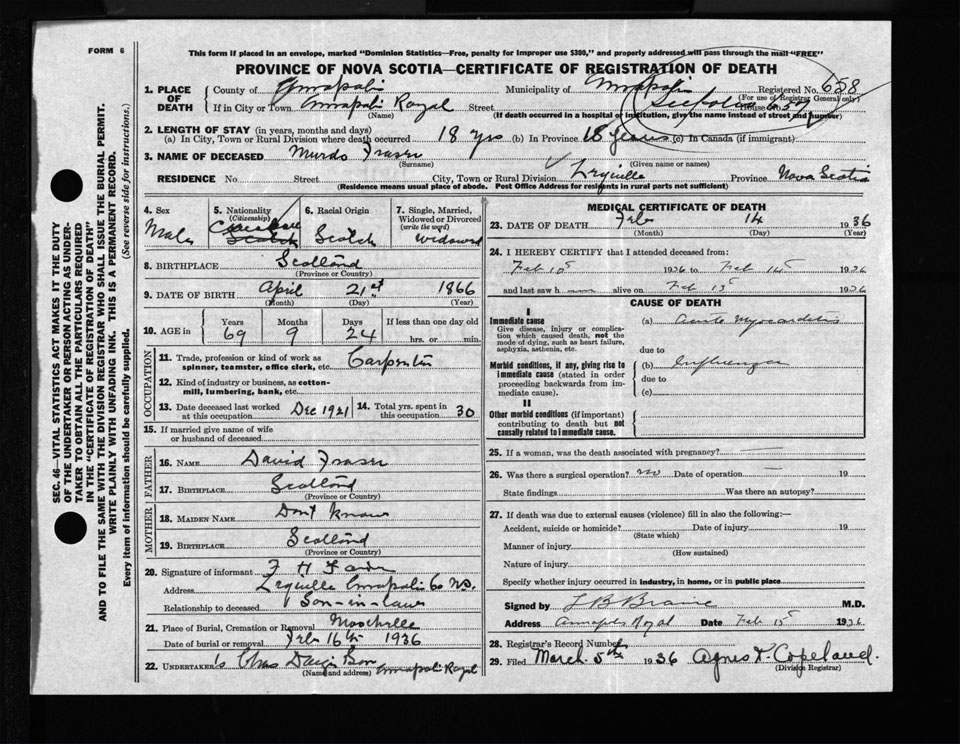 FORM 6
This form if placed in an envelope, marked "Dominion Statistics—Free, penalty for improper use $300," and properly addressed will pass through the mail "FREE"
PROVINCE OF NOVA SCOTIA—CERTIFICATE OF REGISTRATION OF DEATH
1. PLACE OF DEATH
County of Annapolis Municipality of Annapolis Registered No. 658
(For use of Registrar General only)
If in City or Town Annapolis Royal Street House No.
(Name) (If death occurred in a hospital or institution, give the name instead of street and number)
2. LENGTH OF STAY (in years, months and days)
(a) In City, Town or Rural Division where death occurred 18 yrs (b) In Province 18 years (c) In Canada (if immigrant)
3. NAME OF DECEASED Murdo Fraser
(Surname) (Given name or names)
RESIDENCE No. Street City, Town or Rural Division Province Nova Scotia
(Residence means usual place of abode. Post Office Address for residents in rural parts not sufficient)
4. Sex Male
5. Nationality (Citizenship) Scotch
6. Racial Origin Scotch
7. Single, Married, Widowed or Divorced (write the word) widowed
8. BIRTHPLACE Scotland
(Province or Country)
9. DATE OF BIRTH April 21st 1866
(Month) (Day) (Year)
10. AGE in Years 69 Months 9 Days 24 If less than one day old hrs. or min.
OCCUPATION
11. Trade, profession or kind of work as spinner, teamster, office clerk, etc. Carpenter
12. Kind of industry or business, as cotton-mill, lumbering, bank, etc.
13. Date deceased last worked at this occupation Dec 1921
14. Total yrs. spent in this occupation 30
15. If married give name of wife or husband of deceased
FATHER
16. NAME David Fraser
17. BIRTHPLACE Scotland
(Province or Country)
MOTHER
18. MAIDEN NAME Don't know
19. BIRTHPLACE Scotland
(Province or Country)
20. Signature of informant F H
Address Annapolis Co N.S.
Relationship to deceased Son-in-law
21. Place of Burial, Cremation or Removal
Date of burial or removal Feb 16th 1936
22. UNDERTAKER Chas Son Annapolis Royal
(Name and address)
MEDICAL CERTIFICATE OF DEATH
23. DATE OF DEATH Feb 14 1936
(Month) (Day) (Year)
24. I HEREBY CERTIFY that I attended deceased from:
Feb 10 1936 to Feb 14 1936
and last saw h alive on Feb 13 1936
CAUSE OF DEATH
I
Immediate cause
Give disease, injury or complication which caused death, not the mode of dying, such as heart failure, asphyxia, asthenia, etc.
(a) Acute Myocarditis
due to
Morbid conditions, if any, giving rise to immediate cause (stated in order proceeding backwards from immediate cause).
(b) Influenza
due to
(c)
II
Other morbid conditions (if important) contributing to death but not causally related to immediate cause.
25. If a woman, was the death associated with pregnancy? —
26. Was there a surgical operation? no Date of operation — 19
State findings Was there an autopsy?
27. If death was due to external causes (violence) fill in also the following:—
Accident, suicide or homicide? Date of injury 19
(State which)
Manner of injury
(How sustained)
Nature of injury
Specify whether injury occurred in industry, in home, or in public place
Signed by L B Braine M.D.
Address Annapolis Royal Date Feb 15 1936
28. Registrar's Record Number
29. Filed March 5th 1936 Agnes P Copeland.
(Division Registrar)
SEC. 46—VITAL STATISTICS ACT MAKES IT THE DUTY
OF THE UNDERTAKER OR PERSON ACTING AS UNDERTAKER
TO OBTAIN ALL THE PARTICULARS REQUIRED
IN THE "CERTIFICATE OF REGISTRATION OF DEATH"
AND TO FILE THE SAME WITH THE DIVISION REGISTRAR WHO SHALL ISSUE THE BURIAL PERMIT.
WRITE PLAINLY WITH UNFADING INK. THIS IS A PERMANENT RECORD.
Every item of information should be carefully supplied. (See reverse side for instructions.)